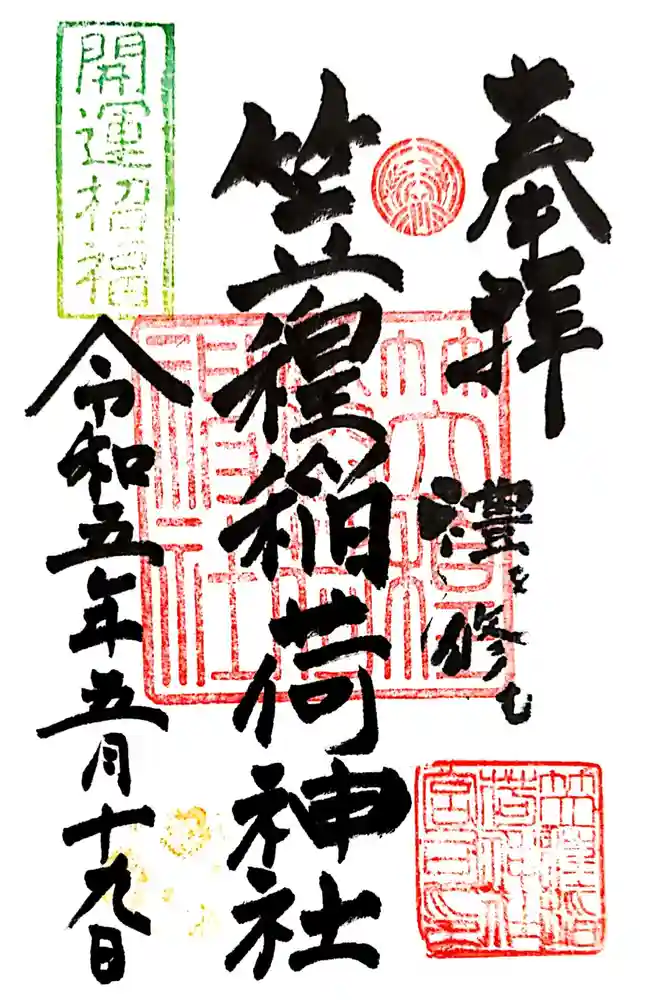 奉拝
禮を修む
笠䅣稲荷神社
開運招福
令和五年五月十九日
笠䅣
稲荷
神社
笠䅣稲
荷神社
宮司印